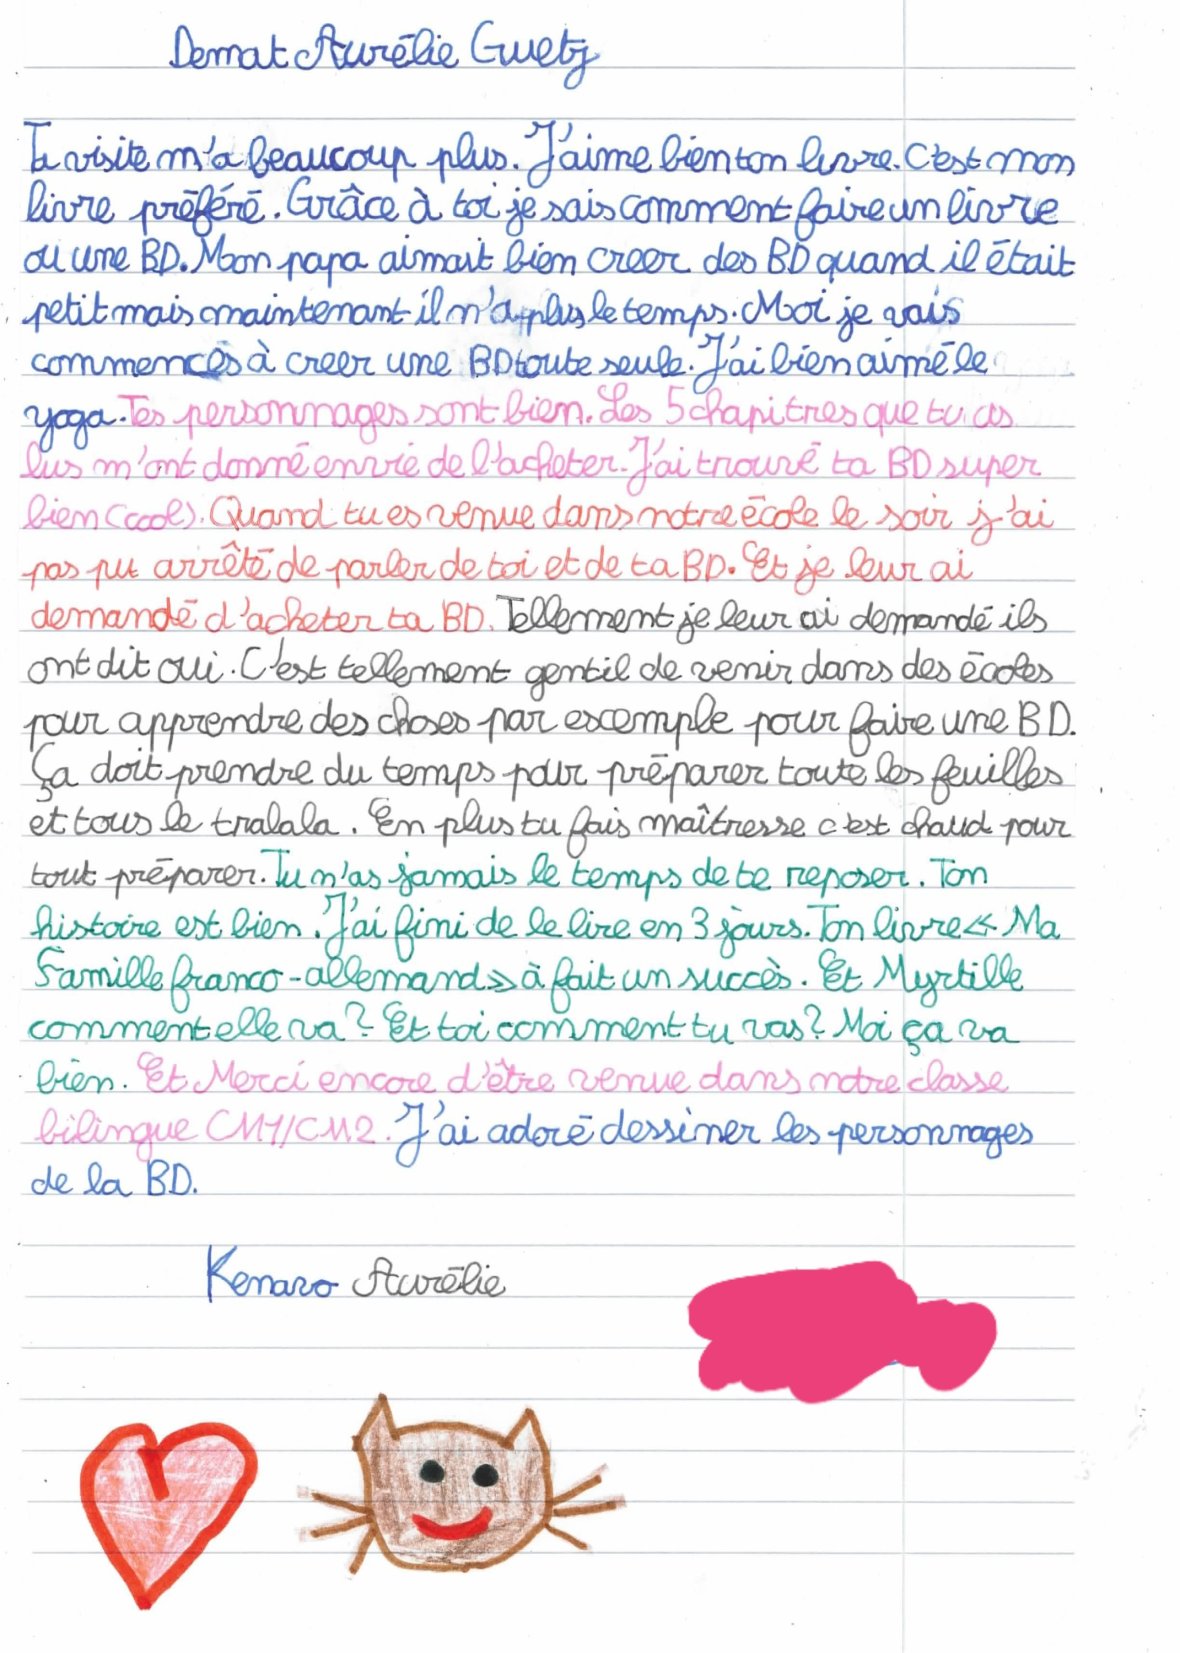 Demat Aurélie Guetz
Ta visite m'a beaucoup plus. J'aime bien ton livre. C'est mon
livre préféré. Grâce à toi je sais comment faire un livre
ou une BD. Mon papa aimait bien creer des BD quand il était
petit mais maintenant il n'a plus le temps. Moi je vais
commencés à creer une BD toute seule. J'ai bien aimé le
yoga. Tes personnages sont bien. Les 5 chapitres que tu as
lus m'ont donné envie de l'acheter. J'ai trouvé ta BD super
bien (cool). Quand tu es venue dans notre école le soir j'ai
pas pu arrêté de parler de toi et de ta BD. Et je leur ai
demandé d'acheter ta BD. Tellement je leur ai demandé ils
ont dit oui. C'est tellement gentil de venir dans des écoles
pour apprendre des choses par escemple pour faire une BD.
Ça doit prendre du temps pour préparer toute les feuilles
et tous le tralala. En plus tu fais maîtresse c'est chaud pour
tout préparer. Tu n'as jamais le temps de te reposer. Ton
histoire est bien. J'ai fini de le lire en 3 jours. Ton livre « Ma
Famille franco-allemand » à fait un succès. Et Myrtille
comment elle va ? Et toi comment tu vas ? Moi ça va
bien. Et Merci encore d'être venue dans notre classe
bilingue CM1/CM2. J'ai adoré dessiner les personnages
de la BD.
Kenavo Aurélie